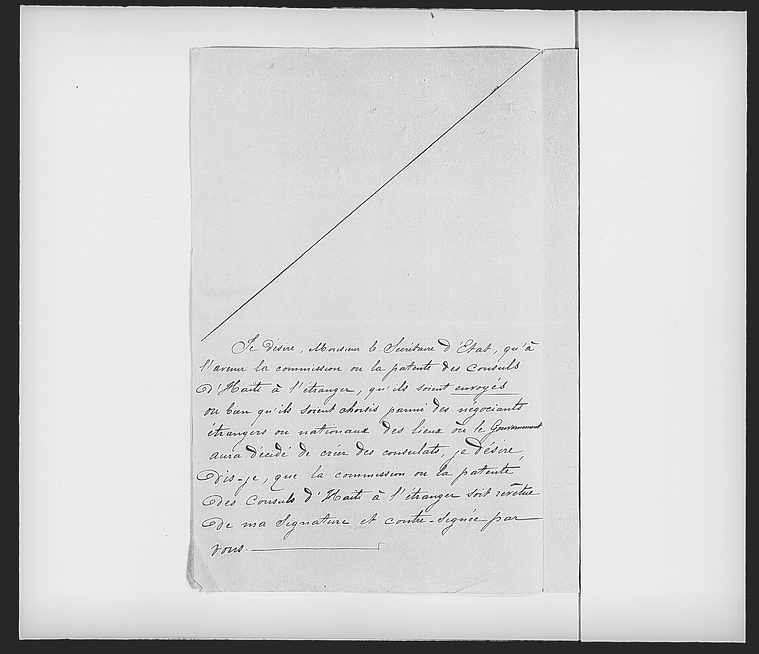 Je désire, Monsieur le Secrétaire d'Etat, qu'à
l'avenir la commission ou la patente des Consuls
d'Haïti à l'étranger, qu'ils soient envoyés
ou bien qu'ils soient choisis parmi des négociants
étrangers ou nationaux des lieux où le Gouvernement
aura décidé de créer des consulats, je désire,
dis-je, que la commission ou la patente
des Consuls d'Haïti à l'étranger soit revêtue
de ma signature et contre-signée par
vous.